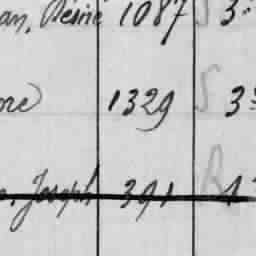 an, Désiré 1087 S 3
ore 1329 S 3
Joseph 391 R 1